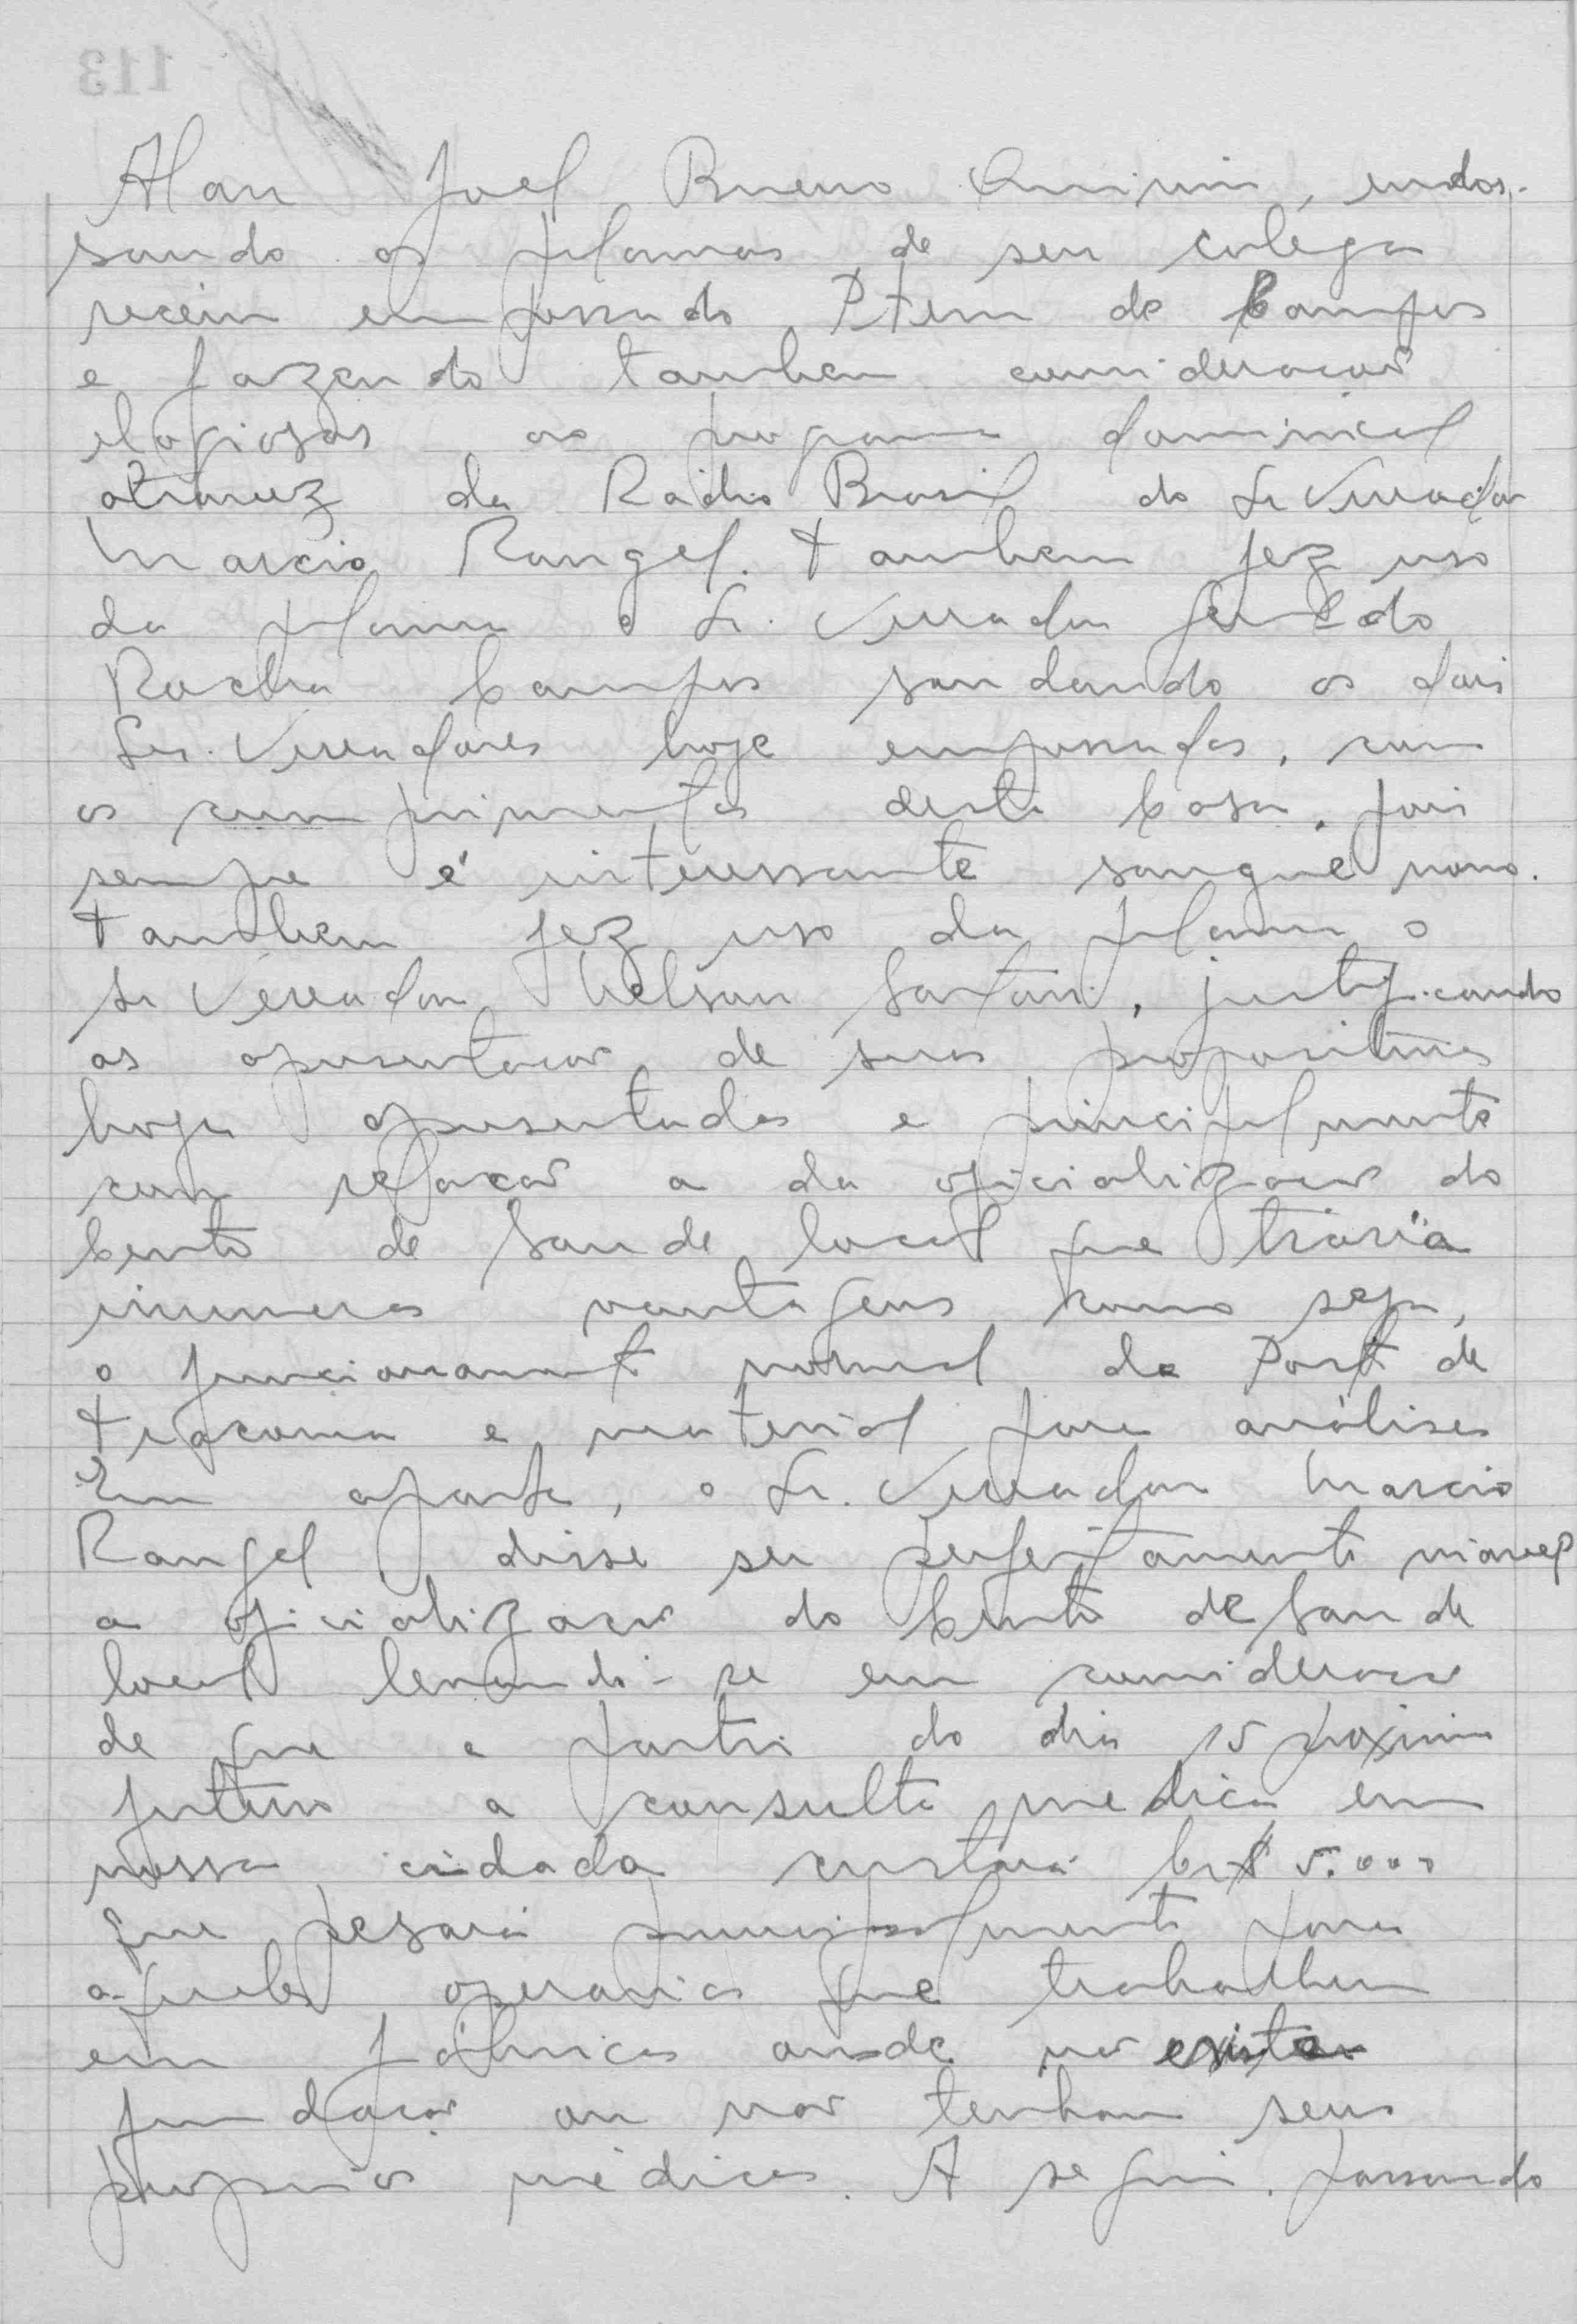 Alan Joel Bueno Quirim, endos-
sando os palavras de seu colega
recem empossado Ptem de Campos
e fazendo tambem consideracoes
elogiosas ao programa dominical
atravez da Radio Brasil do Sr Vereador
Marcio Rangel. Tambem fez uso
da palavra o Sr. Vereador Geraldo
Rocha Campos saudando os dois
Srs. Vereadores hoje empossados, com
os cumprimentos desta Casa, pois
sempre é interessante sangue novo.
Tambem fez uso da palavra o
Sr Vereador Nelson Sartori, justificando
as apresentacoes de suas proposituras
hoje apresentadas e principalmente
com relacao a da oficializacao do
Centro de Saude local que traria
inumeras vantagens como seja,
o funcionamento normal do Posto de
Tracoma e material para análises
Em aparte, o Sr. Vereador Marcio
Rangel, disse ser perfeitamente
a oficializacao do Centro de Saude
local levando-se em consideracao
de que a partir do dia 15 proximo
futuro a consulta medica em
nossa cidade custará Cr$ 5.000
que pesará principalmente para
aqueles operarios que trabalham
em fábricas onde nao existem
fundacao ou nao tenham seus
proprios médicos. A seguir, passando
113